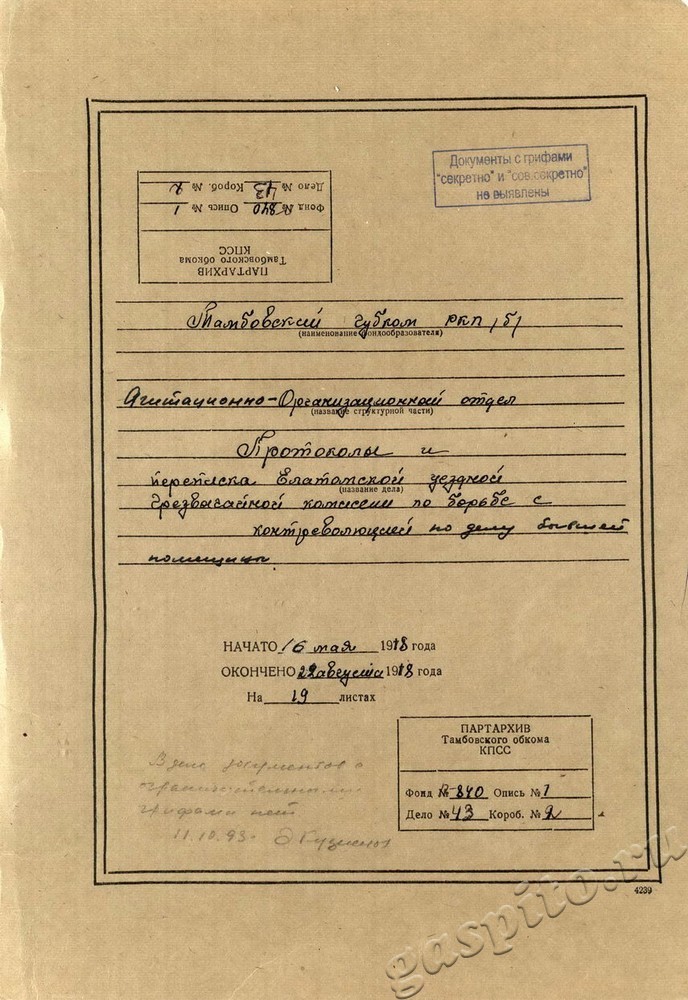 Документы с грифами
"секретно" и "сов.секретно"
не выявлены
ПАРТАРХИВ
Тамбовского обкома
КПСС
Фонд № 840 Опись № 1
Дело № 43 Короб. № 2
Тамбовский губком РКП /б/
(наименование фондообразователя)
Агитационно-Организационный отдел
(название структурной части)
Протоколы и
переписка Елатомской уездной
(название дела)
Чрезвычайной комиссии по борьбе с
контрреволюцией по делу бывшей
помещицы
НАЧАТО 16 мая 1918 года
ОКОНЧЕНО 22 августа 1918 года
На 19 листах
ПАРТАРХИВ
Тамбовского обкома
КПСС
Фонд № 840 Опись № 1
Дело № 43 Короб. № 2
В деле документов с
ограничительными
грифами нет
11.10.93.
4239
gaspito.ru